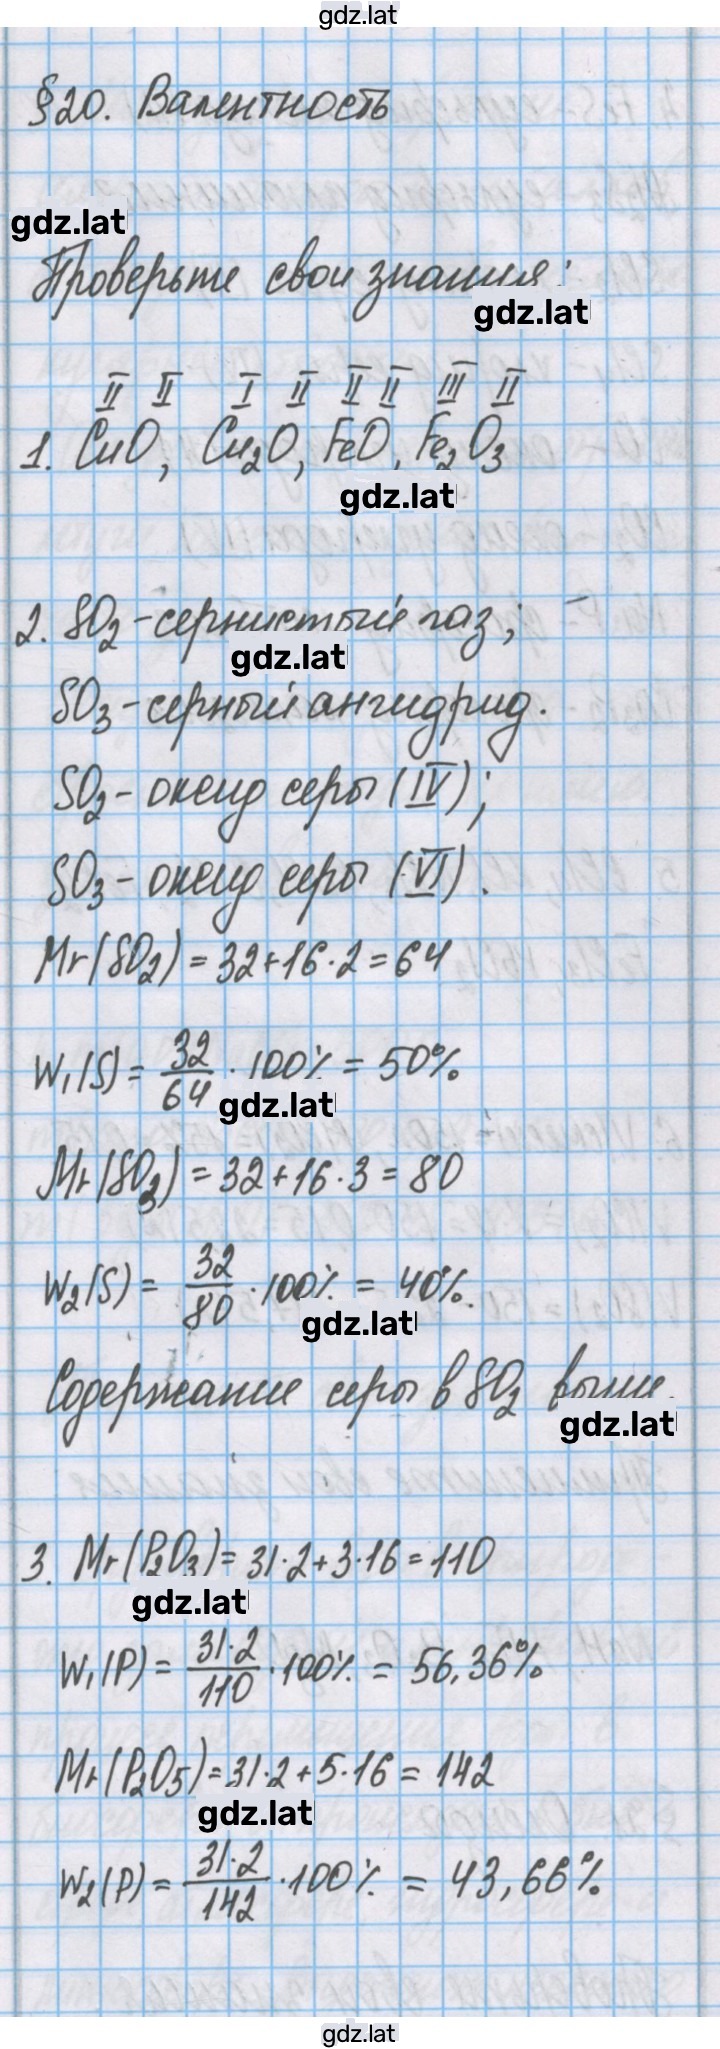 gdz.lat
§20. Валентность
gdz.lat
Проверьте свои знания:
gdz.lat
II II I II II II III II
1. CuO, Cu2O, FeO, Fe2O3
gdz.lat
2. SO2 - сернистый газ;
gdz.lat
SO3 - серный ангидрид.
SO2 - оксид серы (IV);
SO3 - оксид серы (VI).
Mr(SO2) = 32+16·2 = 64
W1(S) = 32/64 · 100% = 50%
gdz.lat
Mr(SO3) = 32+16·3 = 80
W2(S) = 32/80 · 100% = 40%.
gdz.lat
Содержание серы в SO2 выше.
gdz.lat
3. Mr(P2O3) = 31·2+3·16 = 110
gdz.lat
W1(P) = 31·2/110 · 100% = 56,36%
Mr(P2O5) = 31·2+5·16 = 142
gdz.lat
W2(P) = 31·2/142 · 100% = 43,66%
gdz.lat